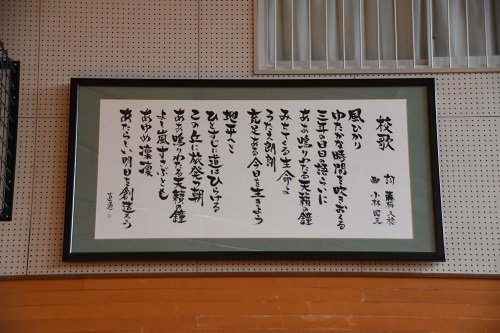 校歌
詞 藤
曲 小林
風ひかり
ゆたかな時間を吹きおくる
三年の日日
ああ鳴りわたる天籟の鐘
みちてくる生命よ
うたえ朗朗
充足る今日を生きよう
地平へと
ひとすじに道はひらける
この丘に旅発つ朝
ああ鳴りわたる天籟の鐘
よし嵐すさぶとも
あゆめ凛凛
あたらしい明日を創造ろう